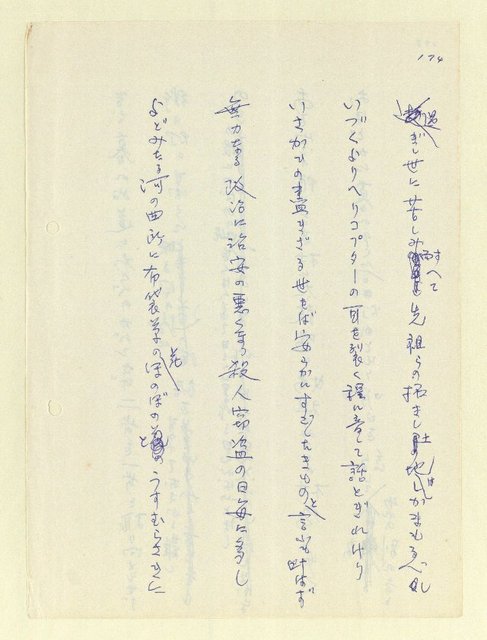 174
過ぎし世に苦しみ耐へて先祖らの拓きし土地はしかまもるべし
いづくよりヘリコプターの耳を裂く程に音して話とぎれけり
いさかひの盡きざる世をば安らかにすごしたきものと言ふも叶はず
無力なる政治に治安の悪くなり殺人窃盗の日毎に多し
よどみたる河の曲所に布袋草の花ほのぼのとうすむらさきに